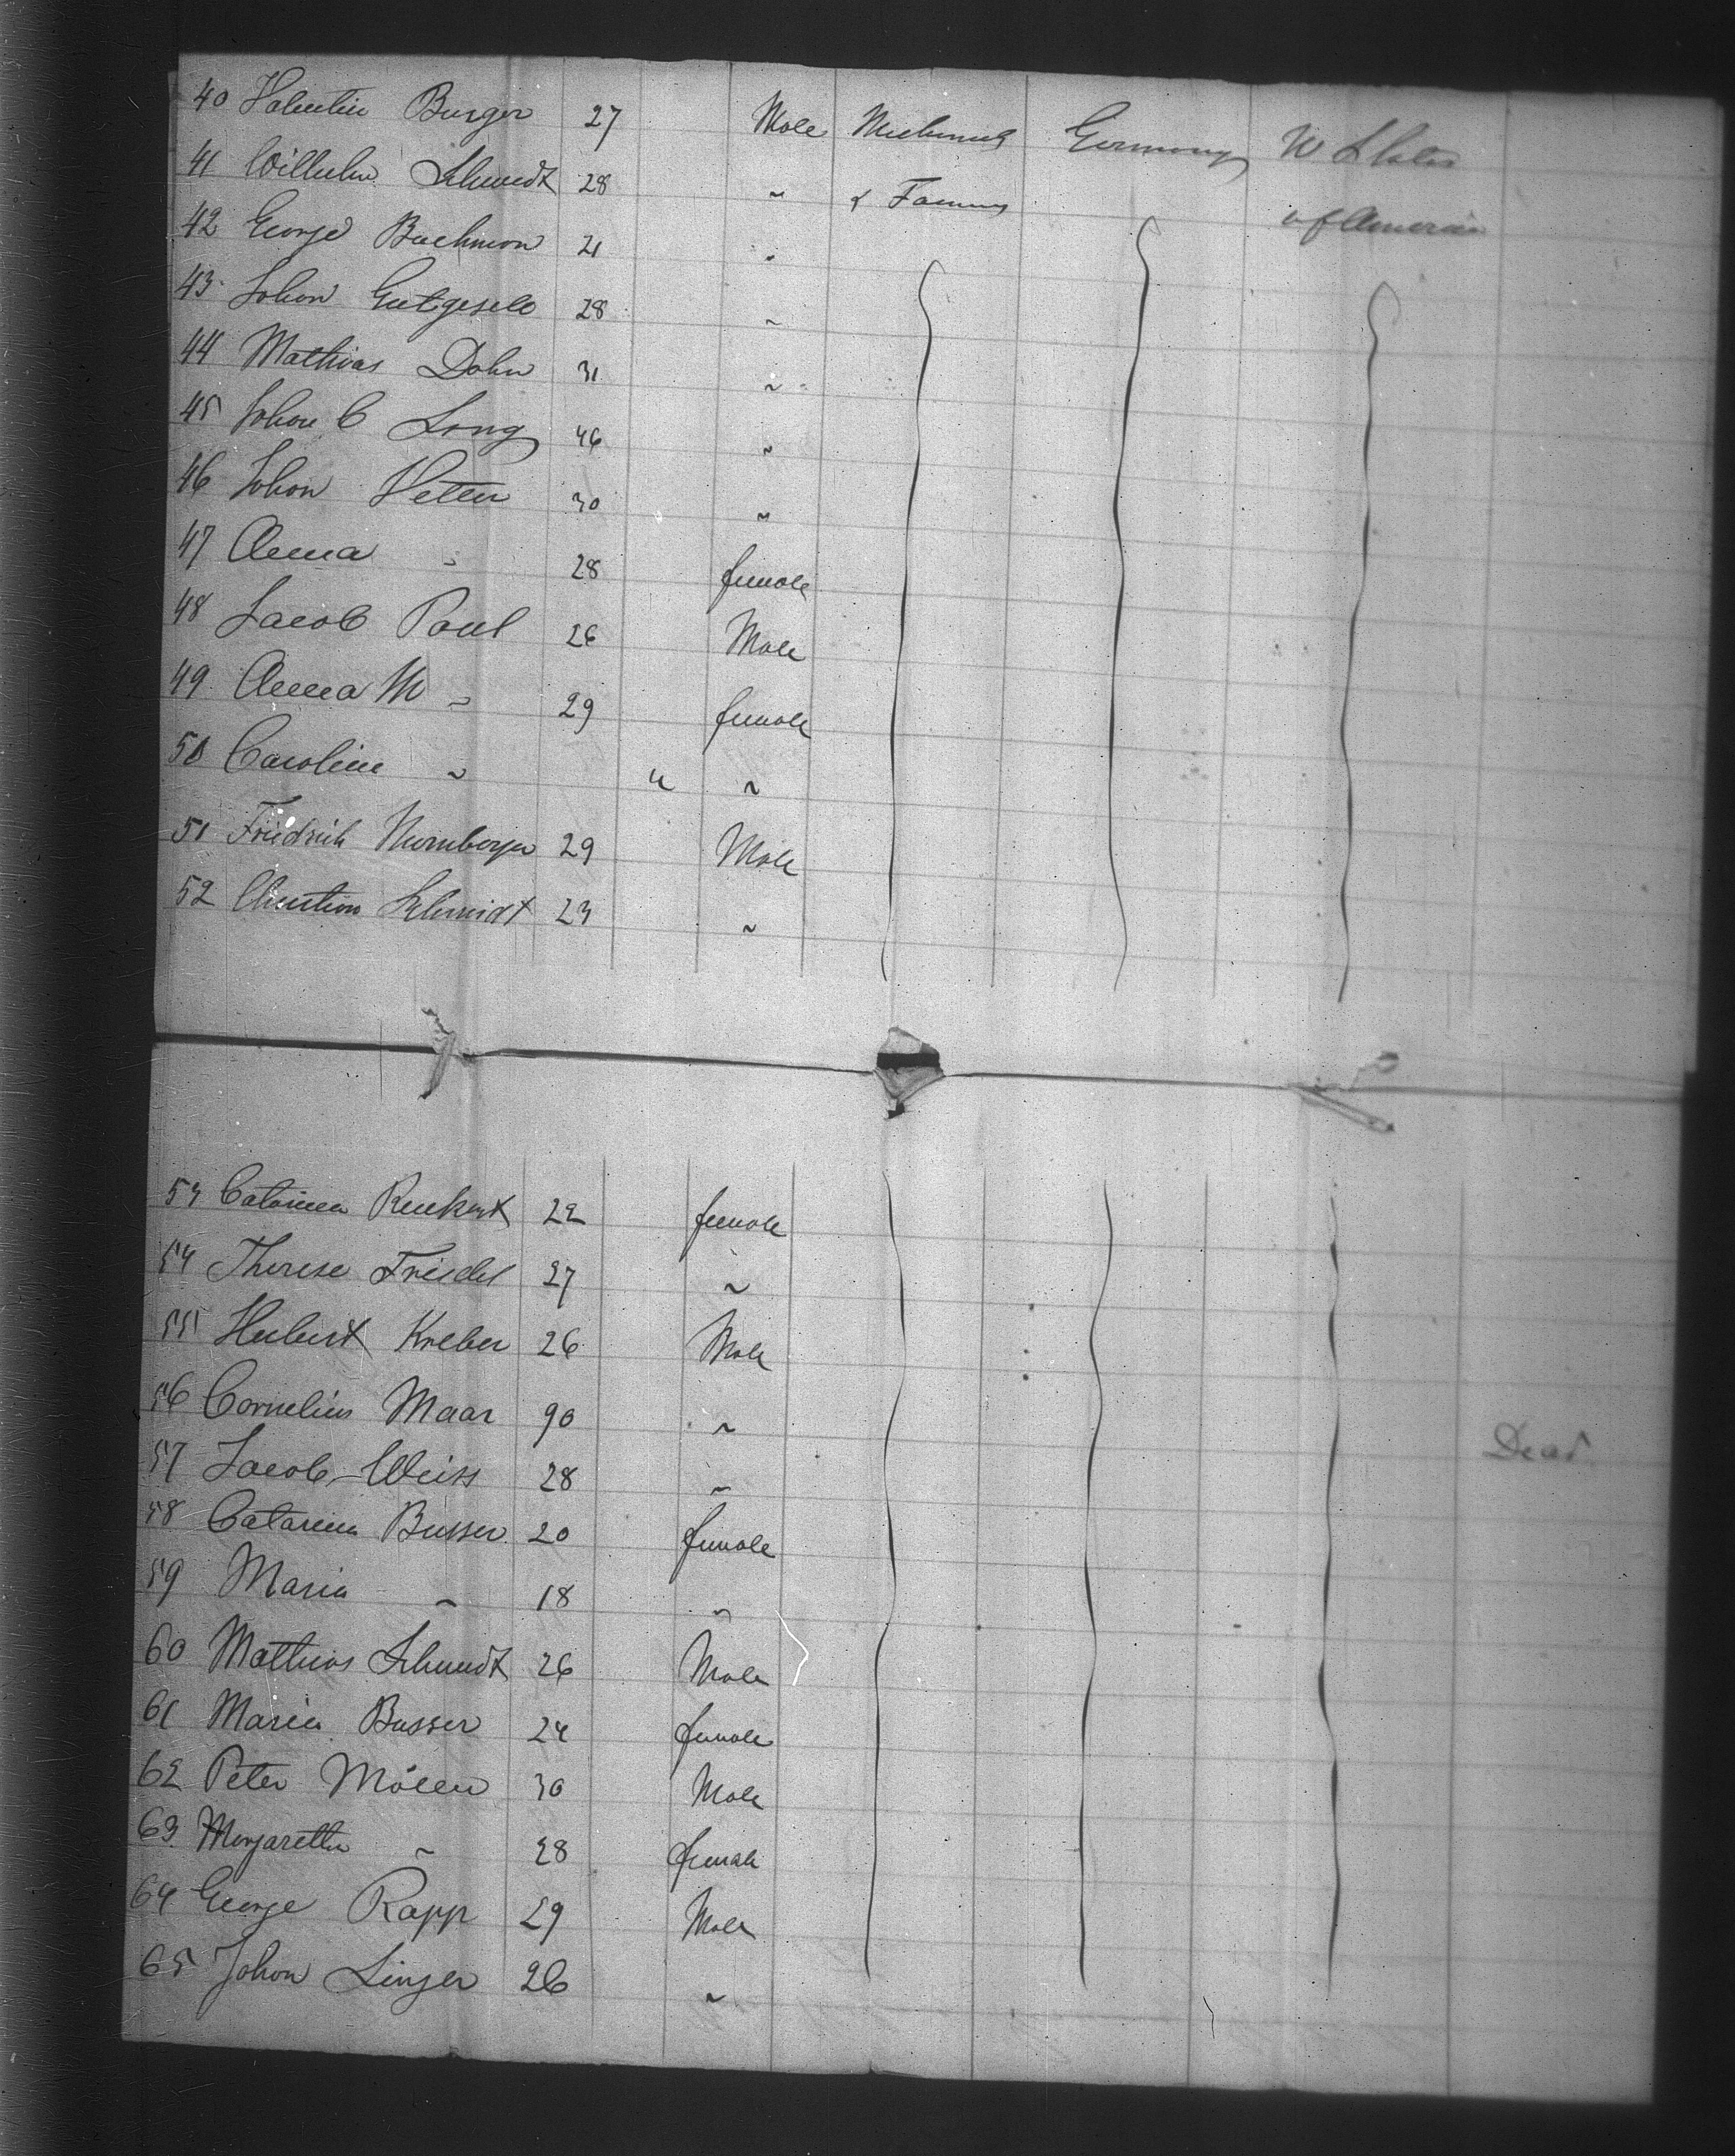 40 Valentin Burger 27 Male Mechanick Germany U States
41 Wilhelm Schmidt 28 " & Farmers of America
42 George Bachman 21 "
43 Johan Gutgesell 28 "
44 Mathias Dohn 31 "
45 Johan C Long 46 "
46 Johan Vetter 30 "
47 Anna " 28 female
48 Jacob Paul 26 Male
49 Anna M " 29 female
50 Caroline " " "
51 Friedrich Nurnberger 29 Male
52 Christian Schmidt 23 "
53 Catarina Ruckert 22 female
54 Therese Friedel 27 "
55 Hubert Kreber 26 Male
56 Cornelius Maar 90 " Dead
57 Jacob Weiss 28 "
58 Catarina Busser 20 female
59 Maria " 18 "
60 Mathias Schmidt 26 Male
61 Maria Busser 24 female
62 Peter 30 Male
63 Margaretha " 28 female
64 George Rapp 29 Male
65 Johan Singer 26 "